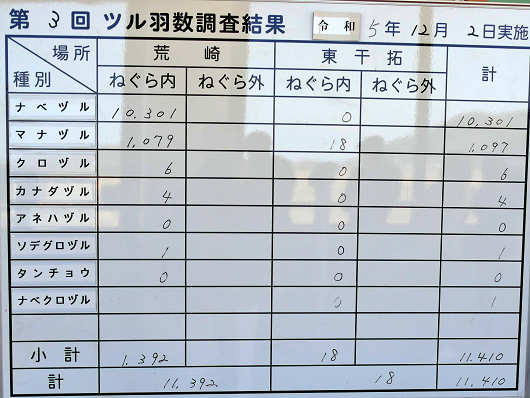 第 3 回 ツル羽数調査結果 令和 5年 12月 2日実施
場所 荒崎 東干拓 計
種別 ねぐら内 ねぐら外 ねぐら内 ねぐら外
ナベヅル 10,301 0 10,301
マナヅル 1,079 18 1,097
クロヅル 6 0 6
カナダヅル 4 0 4
アネハヅル 0 0 0
ソデグロヅル 1 0 1
タンチョウ 0 0 0
ナベクロヅル 0 1
小計 1,392 18 11,410
計 11,392 18 11,410